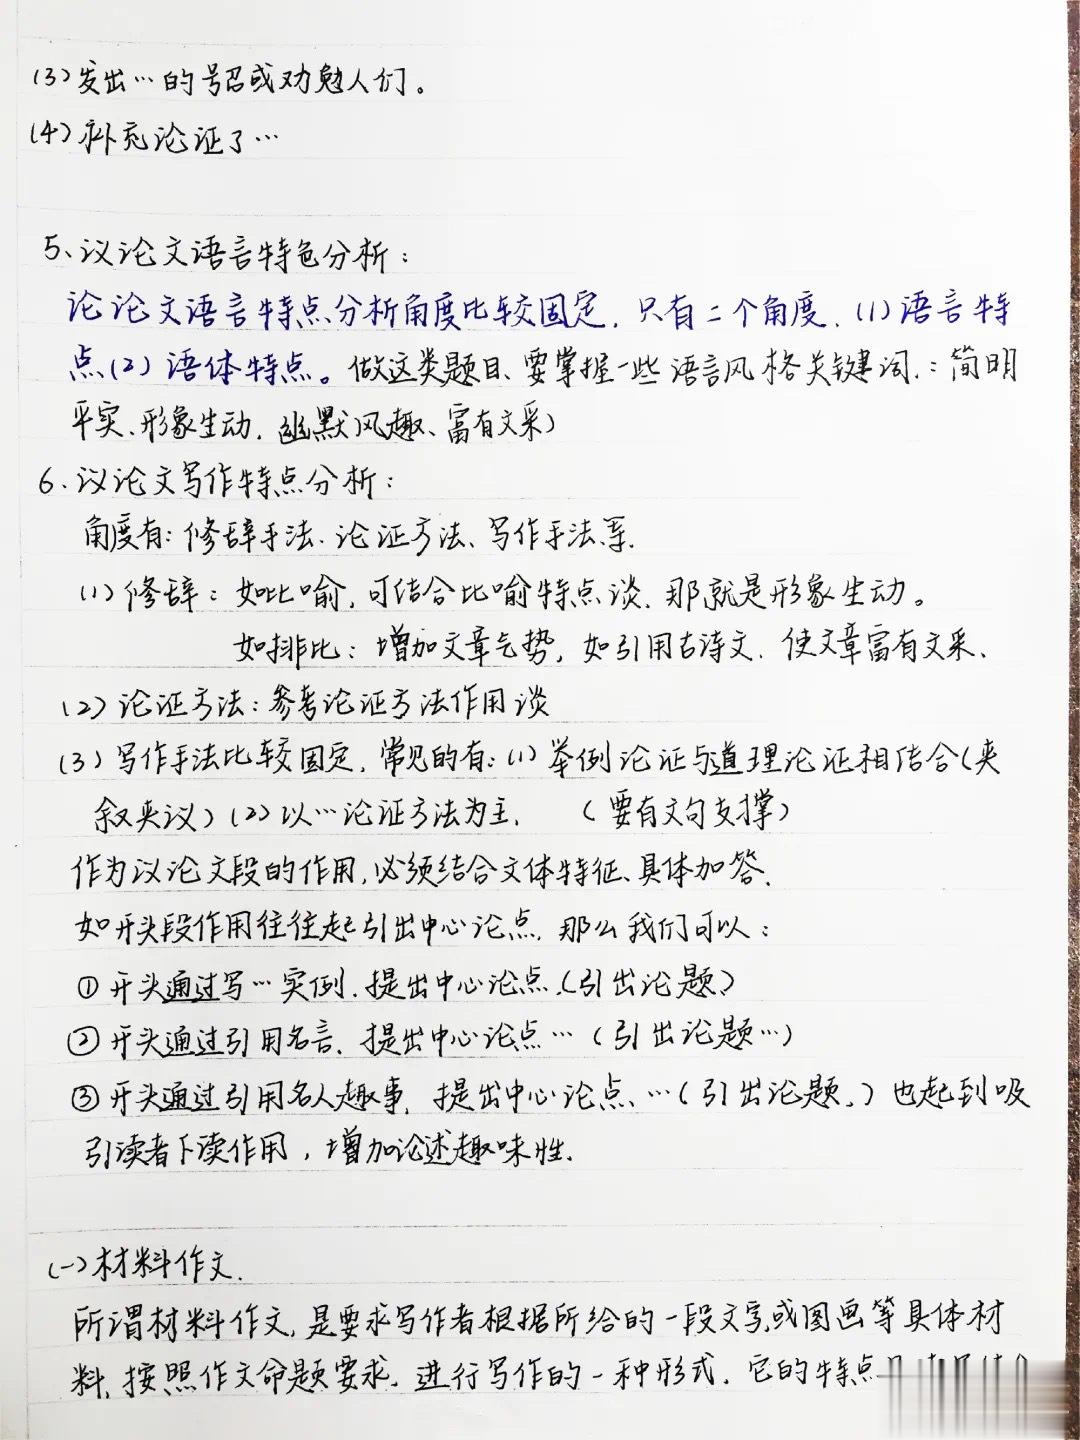 (3)发出…的号召或劝勉人们。
(4)补充论证了…
5、议论文语言特色分析：
论论文语言特点分析角度比较固定，只有二个角度，(1)语言特
点(2)语体特点。做这类题目、要掌握一些语言风格关键词，：简明
平实、形象生动，幽默风趣、富有文采)
6、议论文写作特点分析：
角度有：修辞手法、论证方法、写作手法等.
(1)修辞：如比喻，可结合比喻特点谈，那就是形象生动。
如排比：增加文章气势，如引用古诗文，使文章富有文采、
(2)论证方法：参考论证方法作用谈
(3)写作手法比较固定，常见的有：(1)举例论证与道理论证相结合(夹
叙夹议)(2)以…论证方法为主.  (要有文句支撑)
作为议论文段的作用，必须结合文体特征、具体加答.
如开头段作用往往起引出中心论点，那么我们可以：
①开头通过写…实例，提出中心论点.(引出论题)
②开头通过引用名言、提出中心论点…(引出论题…)
③开头通过引用名人趣事，提出中心论点、…(引出论题。)也起到吸
引读者下读作用，增加论述趣味性.
(一)材料作文.
所谓材料作文，是要求写作者根据所给的一段文字或图画等具体材
料，按照作文命题要求，进行写作的一种形式，它的特点